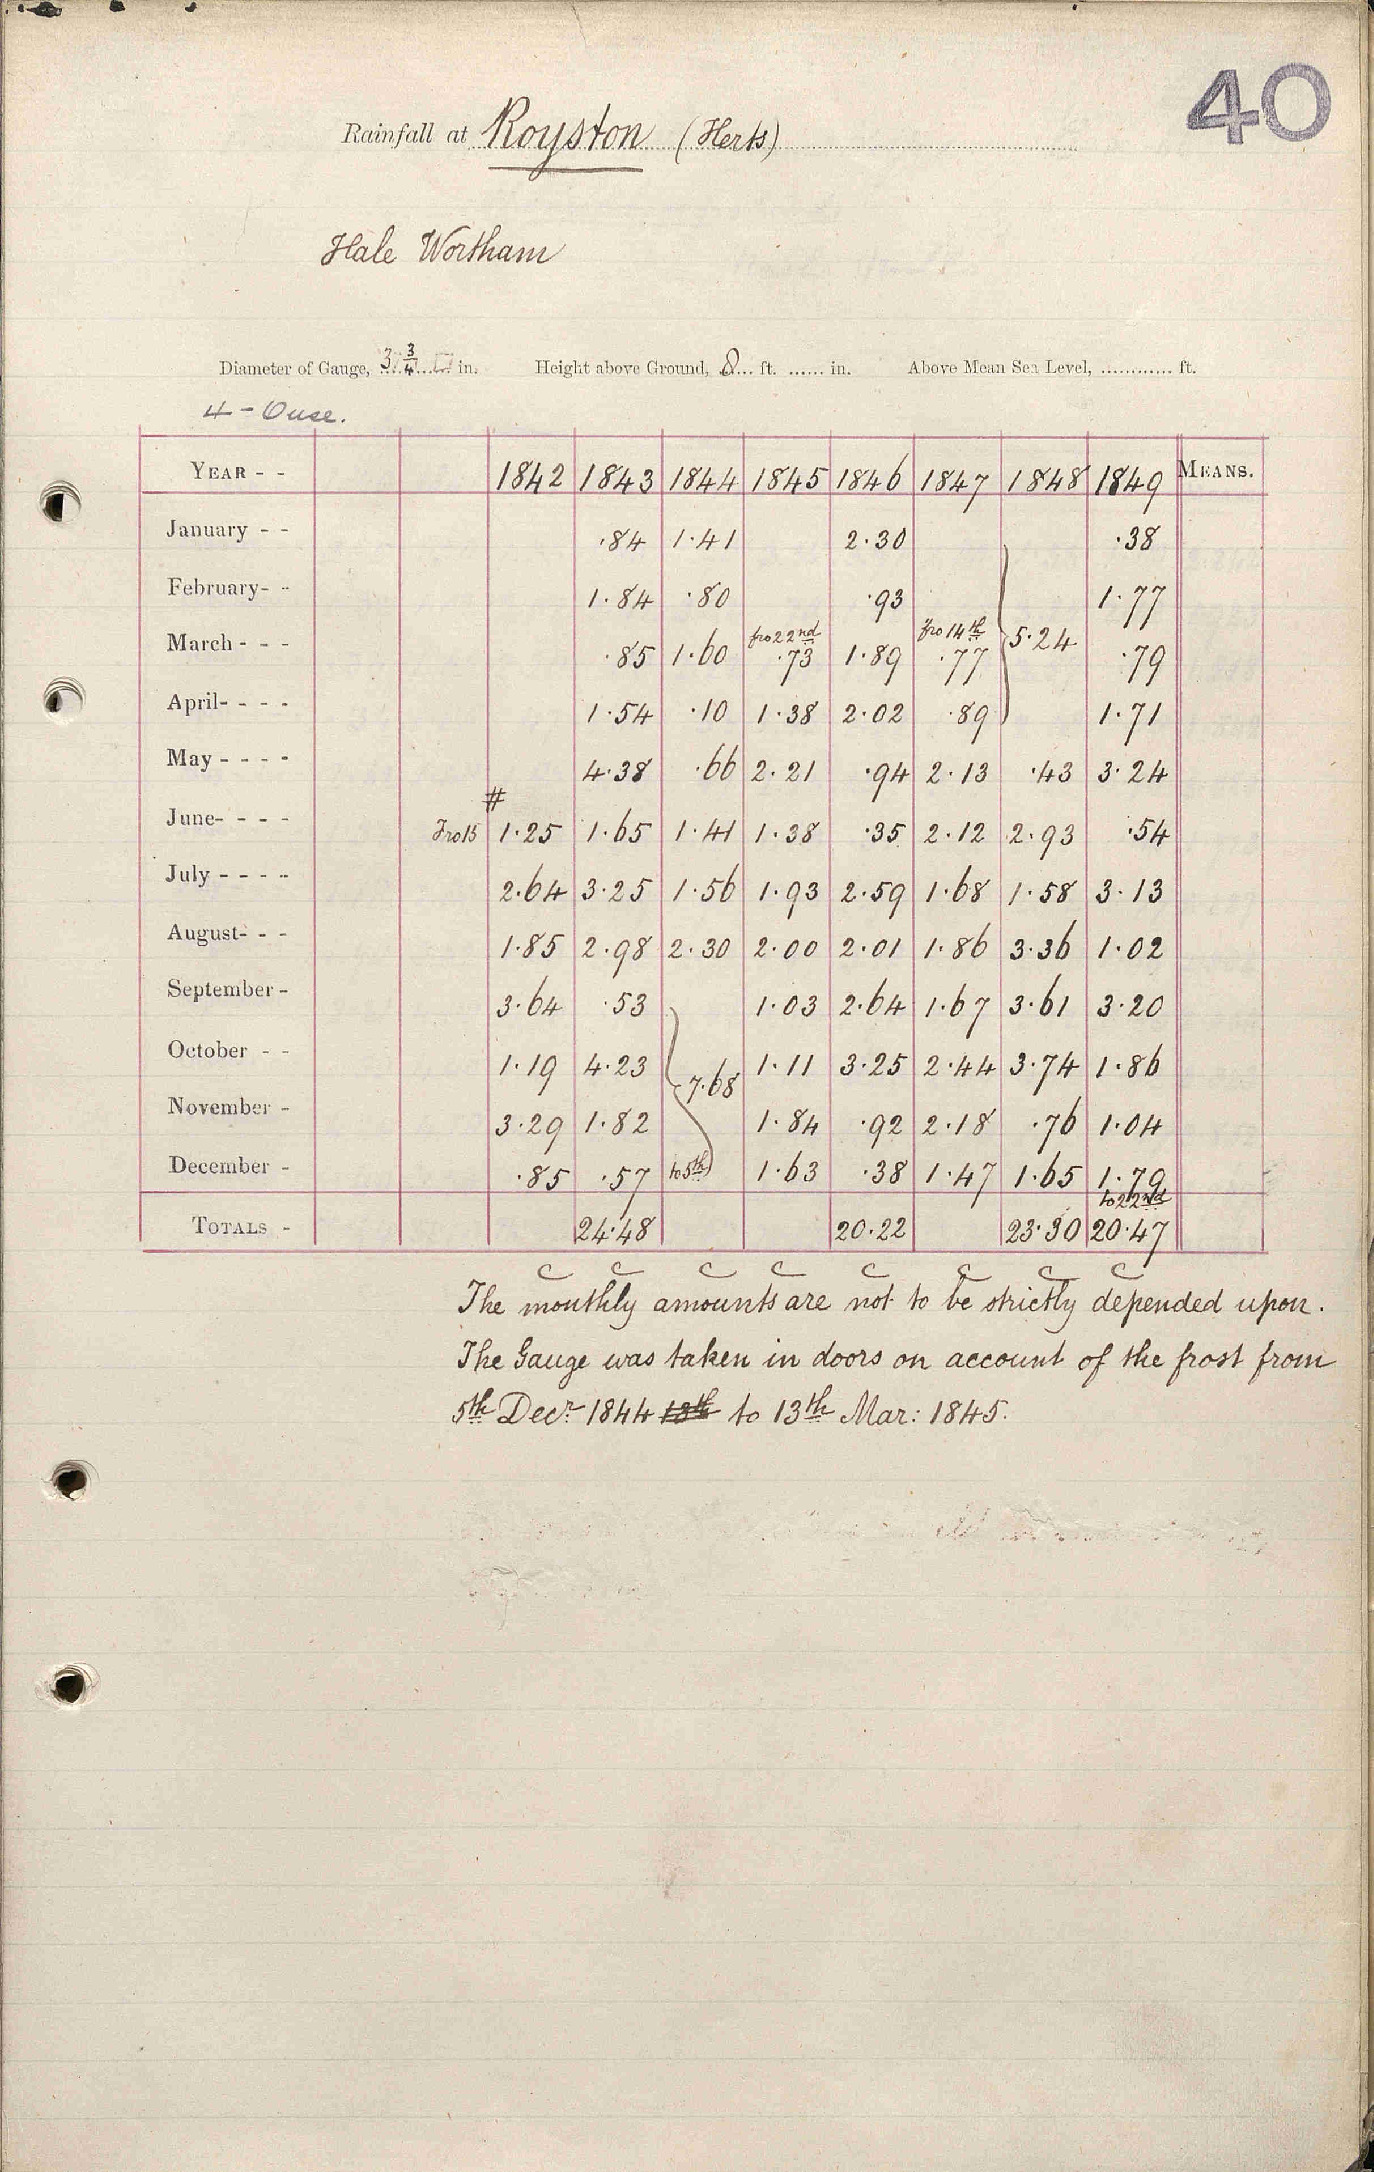 40
Rainfall at Royston (Herts)
Hale Wortham
Diameter of Gauge, 3 3/4 in. Height above Ground, 8 ft. ...... in. Above Mean Sea Level, ............ ft.
4 - Ouse.
YEAR - - 1842 1843 1844 1845 1846 1847 1848 1849 MEANS.
January - - .84 1.41 2.30 .38
February- - 1.84 .80 .93 1.77
fro 22nd fro 14th
March - - - .85 1.60 .73 1.89 .77 5.24 .79
April- - - - 1.54 .10 1.38 2.02 .89 1.71
May - - - - 4.38 .66 2.21 .94 2.13 .43 3.24
#
June- - - - Fro 15 1.25 1.65 1.41 1.38 .35 2.12 2.93 .54
July - - - - 2.64 3.25 1.56 1.93 2.59 1.68 1.58 3.13
August- - - 1.85 2.98 2.30 2.00 2.01 1.86 3.36 1.02
September - 3.64 .53 1.03 2.64 1.67 3.61 3.20
October - - 1.19 4.23 7.68 1.11 3.25 2.44 3.74 1.86
November - 3.29 1.82 1.84 .92 2.18 .76 1.04
December - .85 .57 to 5th 1.63 .38 1.47 1.65 1.79
to 22nd
TOTALS - 24.48 20.22 23.30 20.47
C C C C C C C C
The monthly amounts are not to be strictly depended upon.
The Gauge was taken in doors on account of the frost from
5th Decr 1844 13th to 13th Mar: 1845.